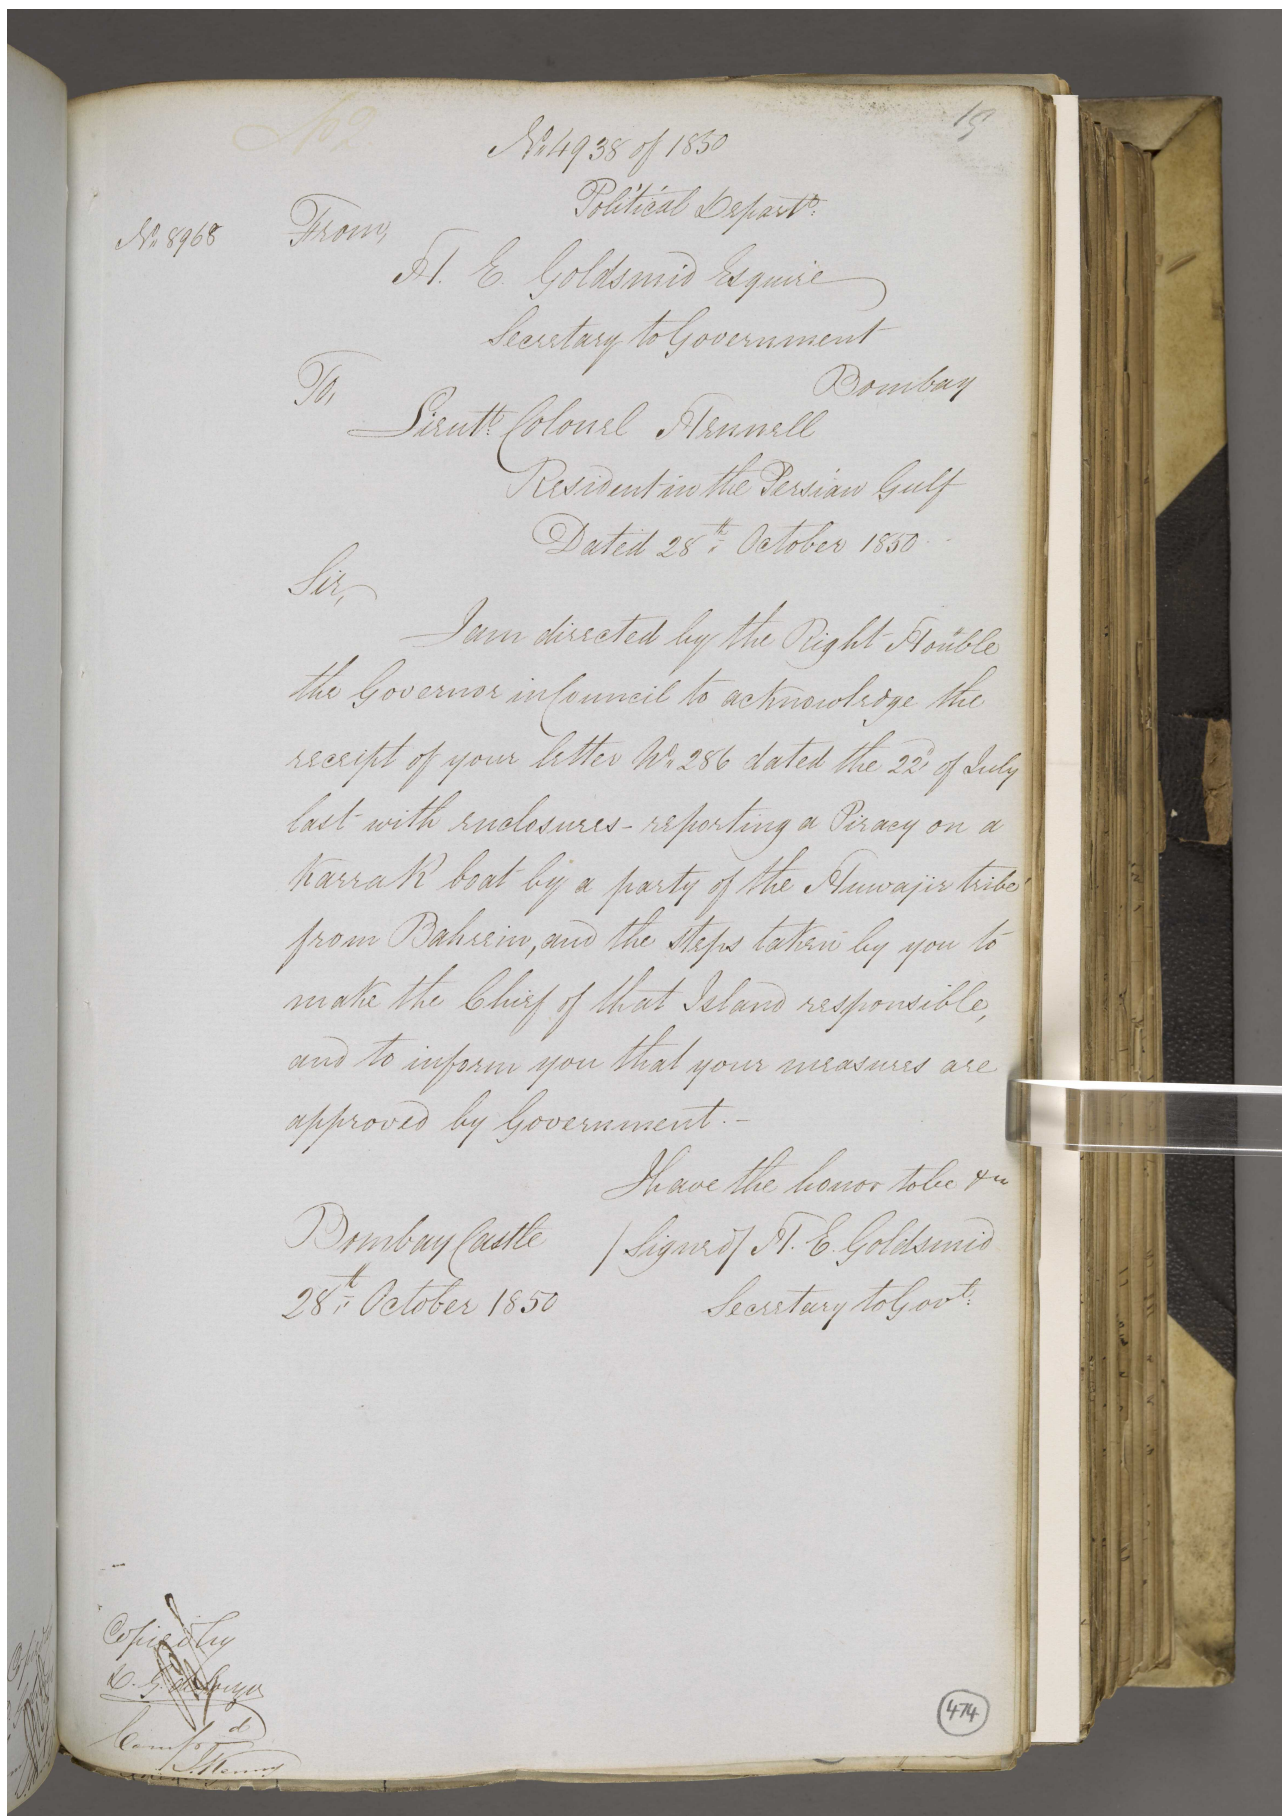 19
No. 4938 of 1850
Political Departt.
No. 8968
From,
H. E. Goldsmid Esquire
Secretary to Government
Bombay
To,
Lieutt. Colonel Hennell
Resident in the Persian Gulf
Dated 28th October 1850
Sir,
I am directed by the Right Honble
the Governor in Council to acknowledge the
receipt of your letter No. 286 dated the 22d of July
last with enclosures - reporting a Piracy on a
Karrak boat by a party of the Huwajir tribe
from Bahrein, and the steps taken by you to
make the Chief of that Island responsible,
and to inform you that your measures are
approved by Government. -
I have the honor to be &ca
Bombay Castle
/Signed/ H. E. Goldsmid
28th October 1850
Secretary to Govt.
Copied by
Compd
474